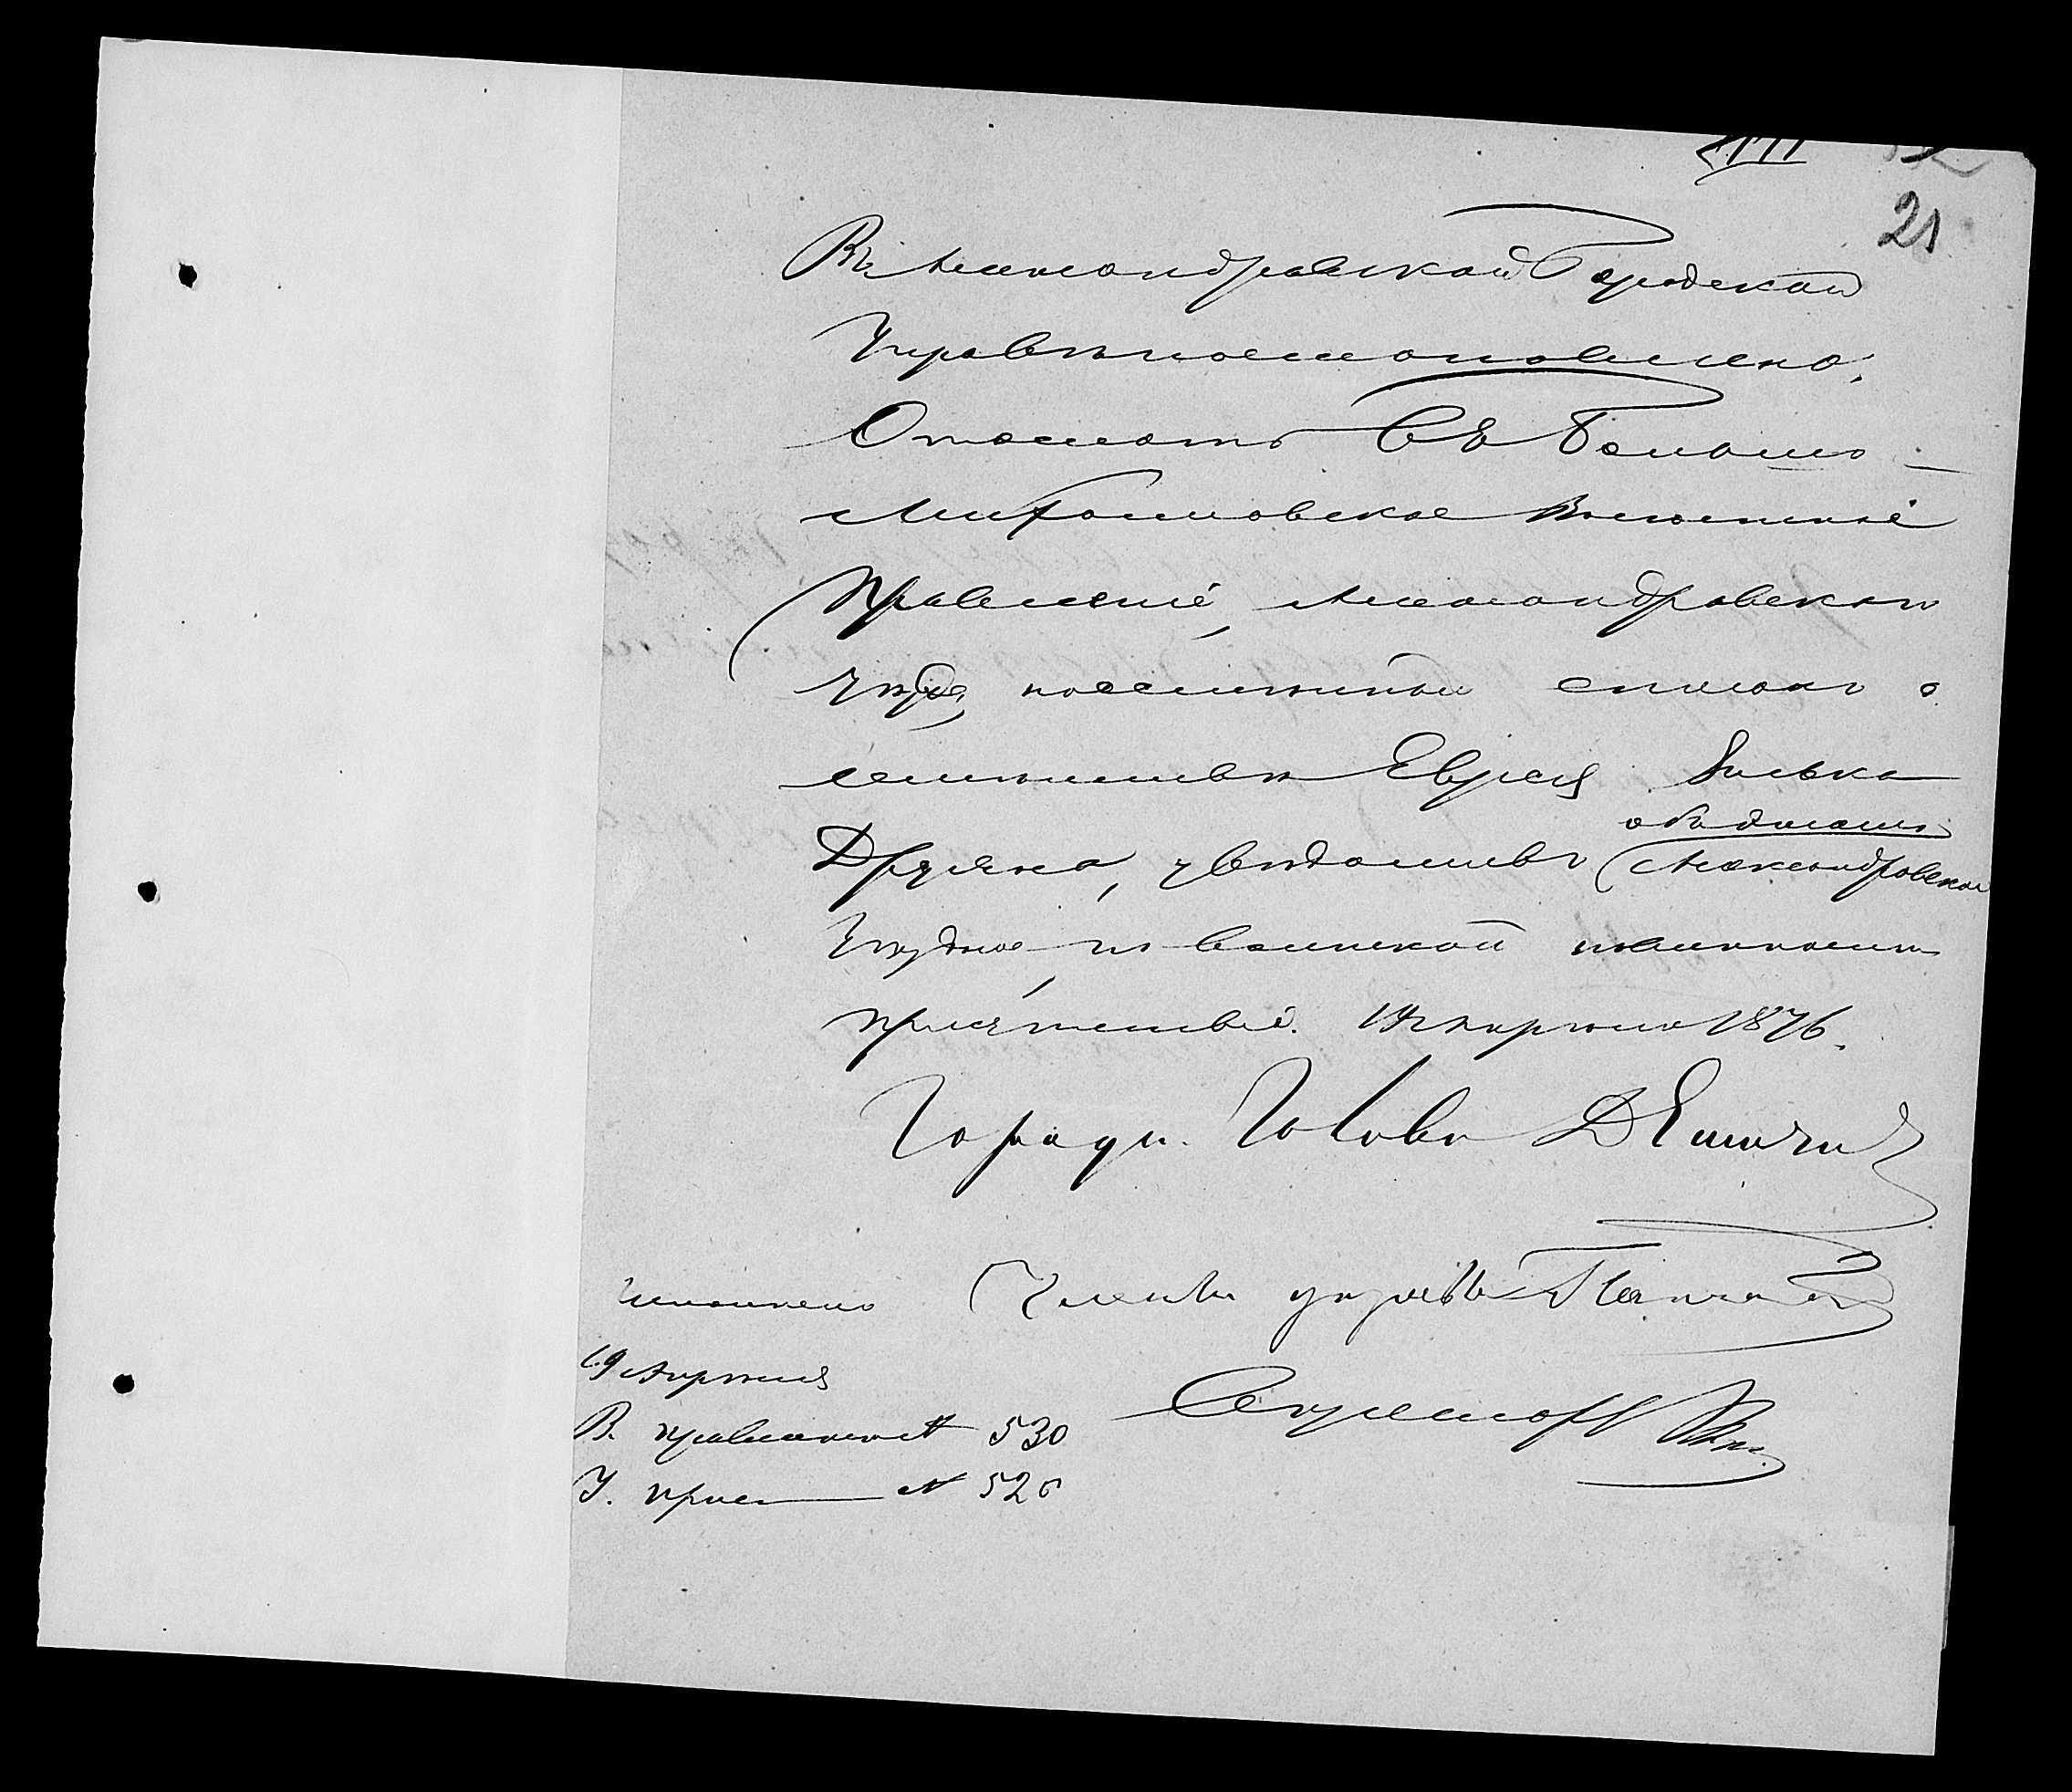 21
Въ Александровской Городской
Управѣ постановлено:
Отослать въ Больше-
Михайловское Волостное
Правленіе, Александровскаго
уѣзда, посемейный списокъ о
семействѣ Еврея
увѣдомивъ
объ этомъ Александровское
Уѣздное по воинской повинности
присутствіе. 19 Апрѣля 1876.
Городск. Голова Д
исполнено Члены управы
19 Апрѣля
В. правленію № 530
У. прис № 526